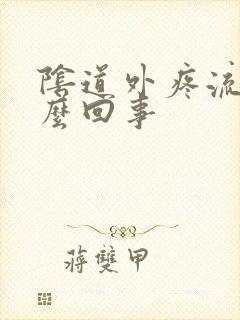 陰道外疼流
麼回事
蔣雙甲